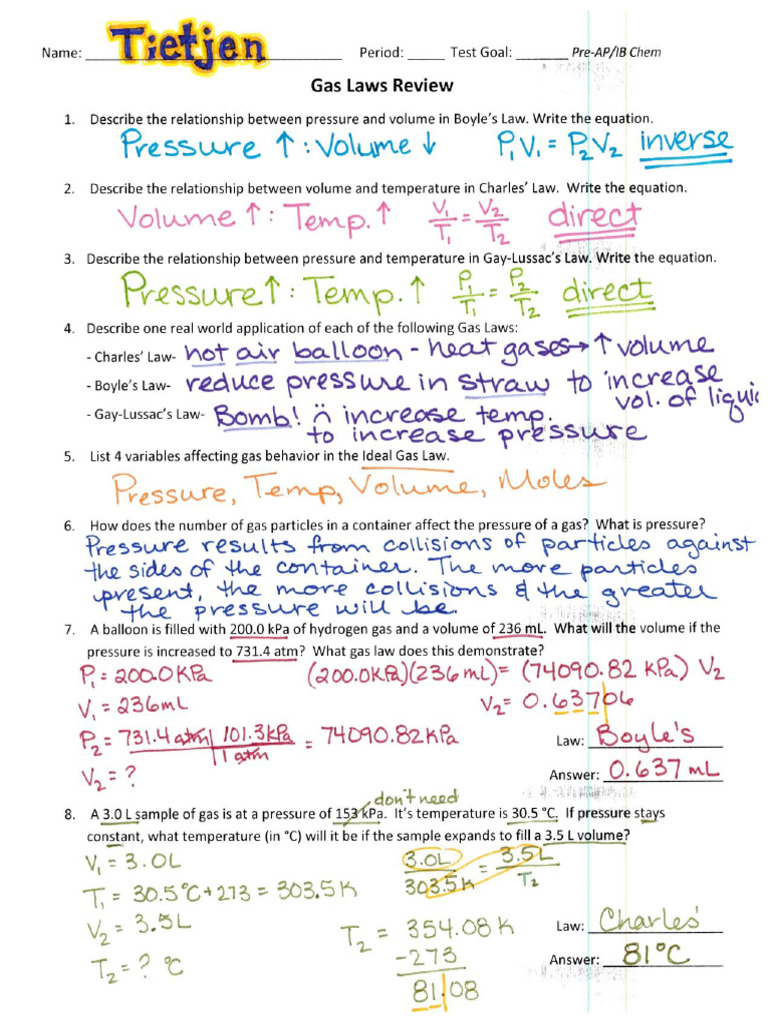 Name: Tietjen Period: _____ Test Goal: _______ Pre-AP/IB Chem
Gas Laws Review
1. Describe the relationship between pressure and volume in Boyle's Law. Write the equation.
Pressure ↑ : Volume ↓ P₁V₁ = P₂V₂ inverse
2. Describe the relationship between volume and temperature in Charles' Law. Write the equation.
Volume ↑ : Temp. ↑ V₁/T₁ = V₂/T₂ direct
3. Describe the relationship between pressure and temperature in Gay-Lussac's Law. Write the equation.
Pressure ↑ : Temp. ↑ P₁/T₁ = P₂/T₂ direct
4. Describe one real world application of each of the following Gas Laws:
- Charles' Law- hot air balloon - heat gases → ↑ volume
- Boyle's Law- reduce pressure in straw to increase
vol. of liquid
- Gay-Lussac's Law- Bomb! increase temp.
to increase pressure
5. List 4 variables affecting gas behavior in the Ideal Gas Law.
Pressure, Temp, Volume, Moles
6. How does the number of gas particles in a container affect the pressure of a gas? What is pressure?
Pressure results from collisions of particles against
the sides of the container. The more particles
present, the more collisions & the greater
the pressure will be.
7. A balloon is filled with 200.0 kPa of hydrogen gas and a volume of 236 mL. What will the volume if the
pressure is increased to 731.4 atm? What gas law does this demonstrate?
P₁ = 200.0 KPa (200.0KPa)(236mL) = (74090.82 KPa) V₂
V₁ = 236mL V₂ = 0.63706
P₂ = 731.4 atm | 101.3kPa / 1 atm = 74090.82KPa
Law: Boyle's
V₂ = ?
Answer: 0.637 mL
don't need
8. A 3.0 L sample of gas is at a pressure of 153 kPa. It's temperature is 30.5 °C. If pressure stays
constant, what temperature (in °C) will it be if the sample expands to fill a 3.5 L volume?
V₁ = 3.0L 3.0L/303.5K = 3.5L/T₂
T₁ = 30.5°C+273 = 303.5K
V₂ = 3.5L T₂ = 354.08K Law: Charles'
T₂ = ? °C -273 Answer: 81°C
81.08